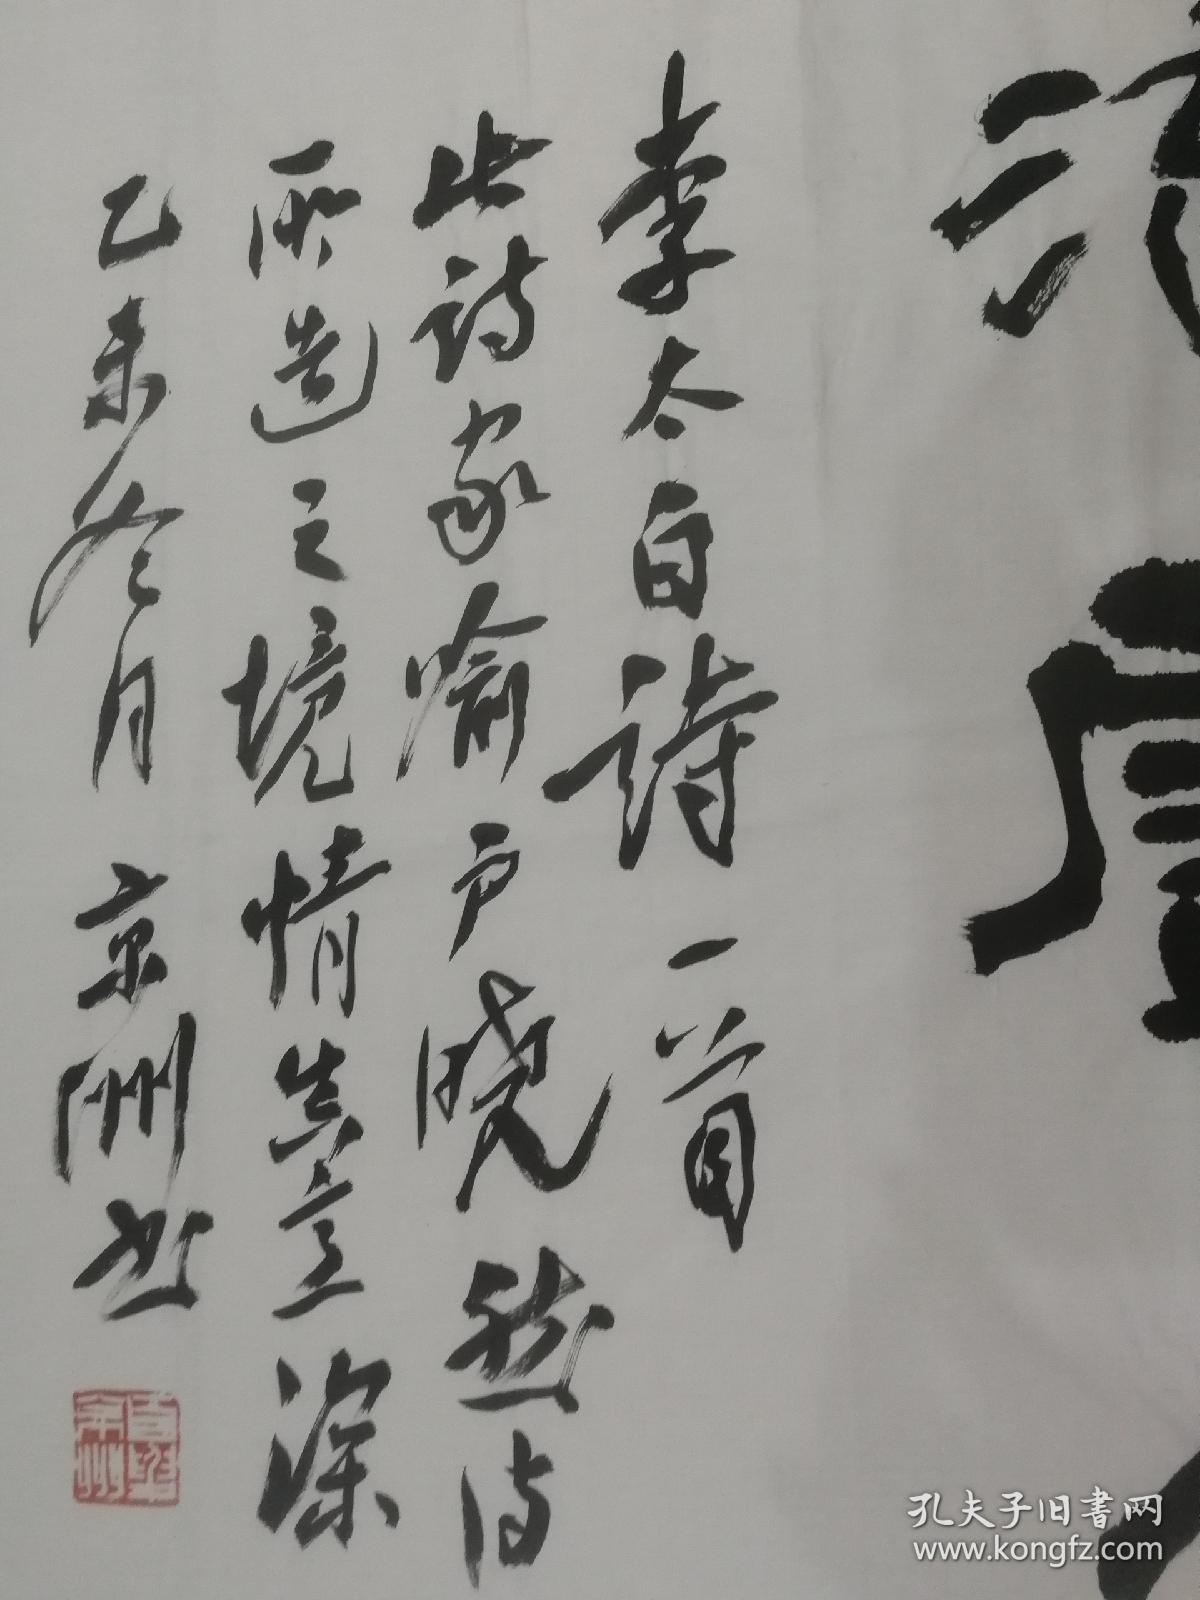 李太白詩一首
此詩家喻户晓然诗
所造之境情真意深
乙未冬月京洲书
孔夫子旧書网
www.kongfz.com